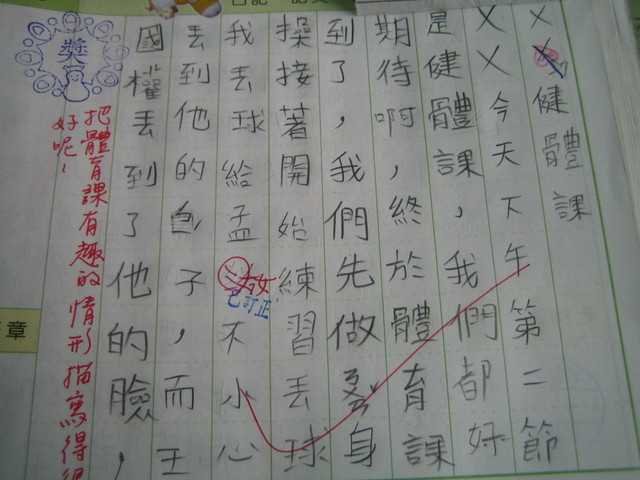 健體課
今天下午第二節
是健體課,我們都好
期待啊,終於體育課
到了,我們先做身
操接著開始練習丟球
我丟球給孟不小心
丟到他的子,而王
國權丟到了他的臉,
已訂正
獎
把體育課有趣的情形描寫得很
好呢!
章